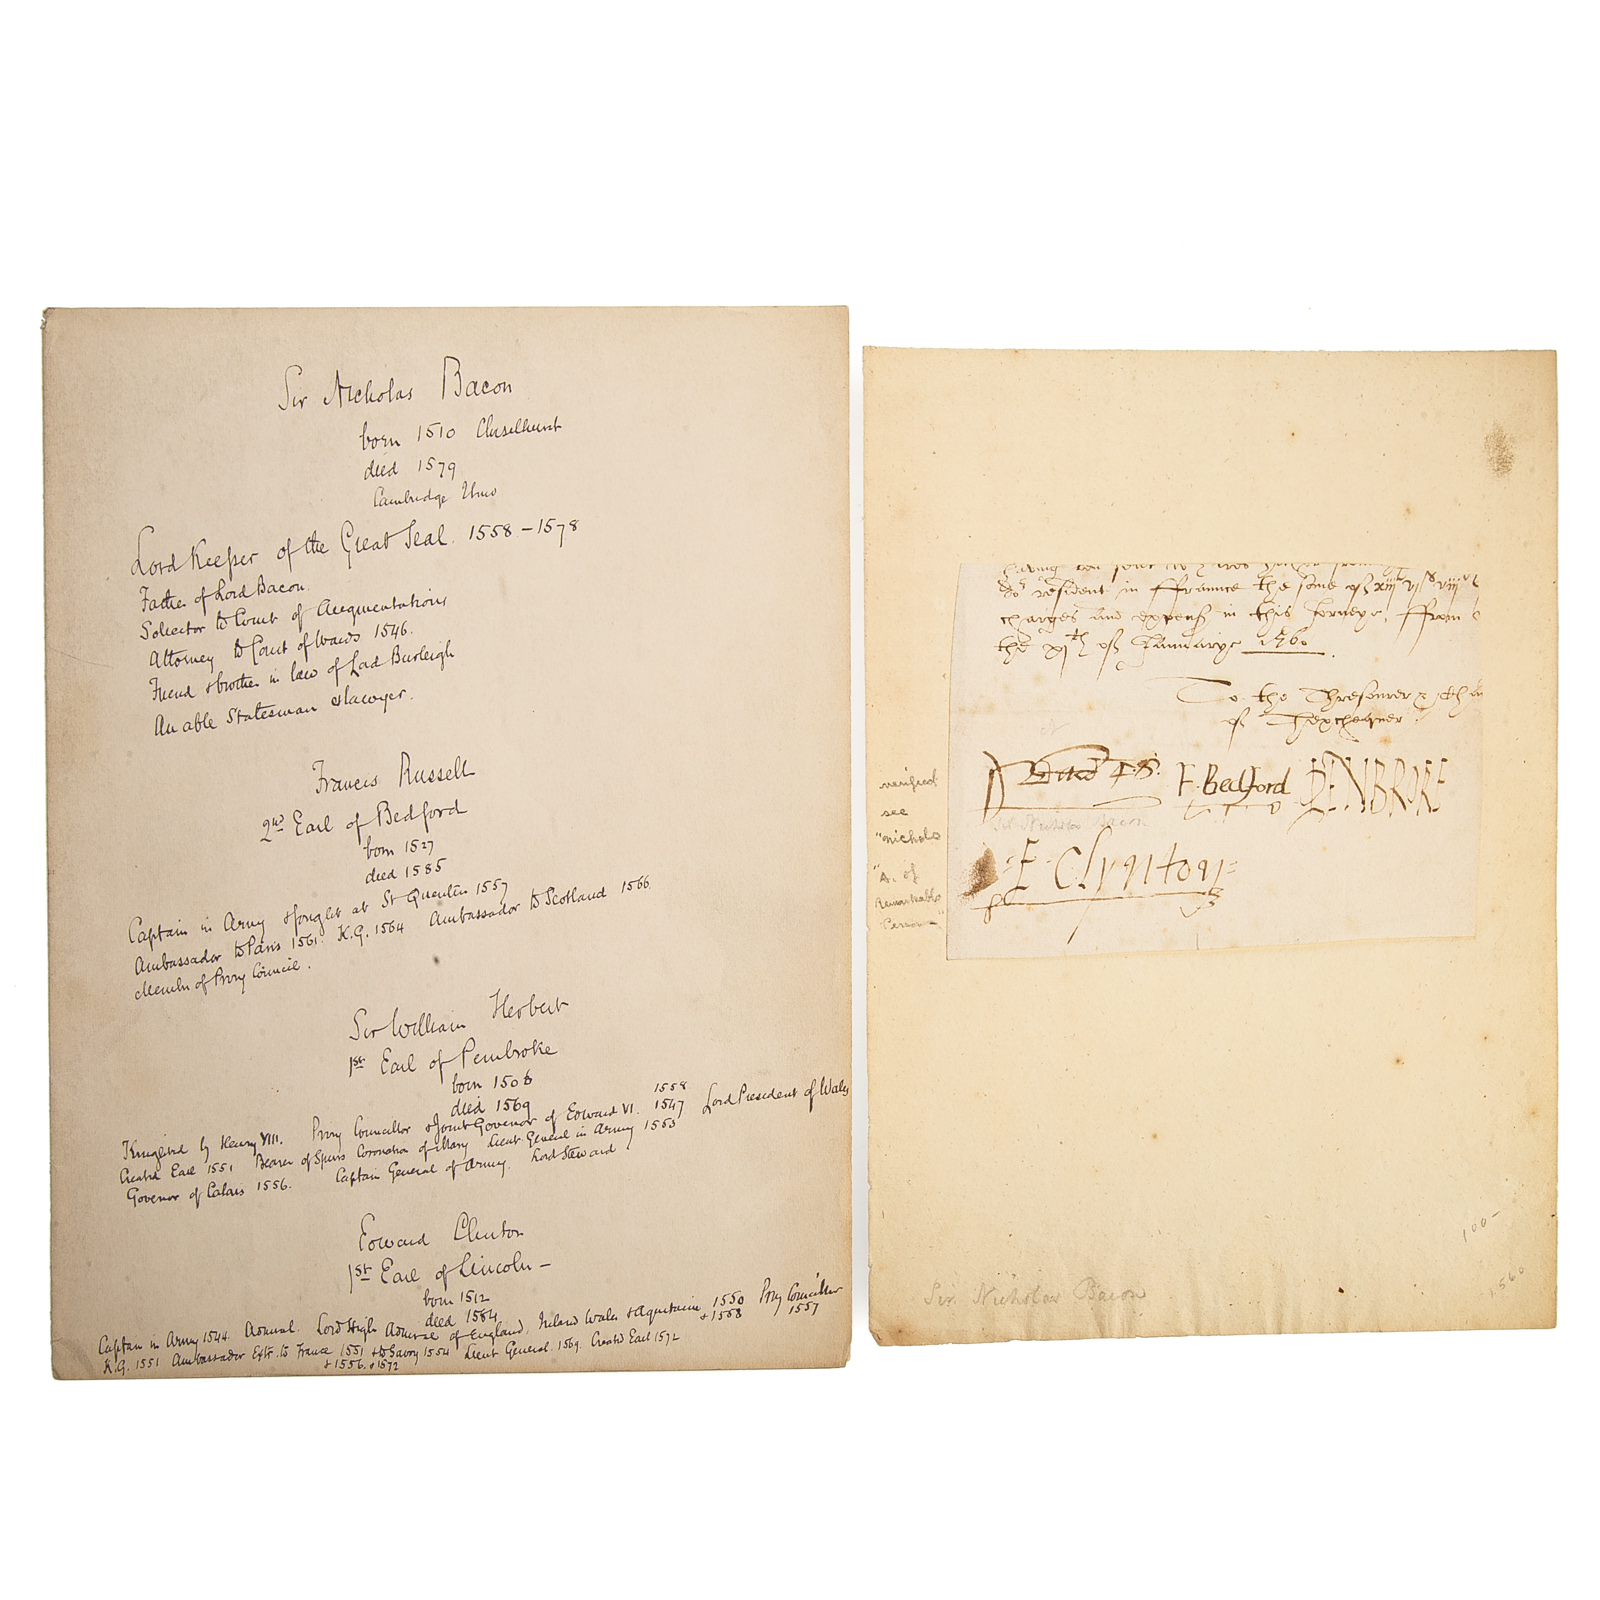 Sir Nicholas Bacon
born 1510 Chiselhurst
died 1579
Cambridge Univ
Lord Keeper of the Great Seal. 1558-1578
Father of Lord Bacon.
Solicitor to Court of Augmentations
Attorney to Court of Wards 1546.
Friend & brother in law of Lord Burleigh
An able Statesman & lawyer.
Francis Russell
2nd Earl of Bedford
born 1527
died 1585
Captain in Army & fought at St Quentin 1557
Ambassador to Paris 1561. K.G. 1564 Ambassador to Scotland 1566
Member of Privy Council.
Sir William Herbert
1st Earl of Pembroke
born 1506
died 1569
1558
Knighted by Henry VIII. Privy Councillor & Joint Governor of Edward VI. 1547 Lord President of Wales
Created Earl 1551 Bearer of Spurs Coronation of Mary Lieut General in Army 1553
Governor of Calais 1556. Captain General of Army. Lord Steward
Edward Clinton
1st Earl of Lincoln –
born 1512
died 1584
Captain in Army 1544. Admiral. Lord High Admiral of England, Ireland Wales & Aquitaine 1550 Privy Councillor
& 1558 1557
K.G. 1551 Ambassador Extr. to France 1551 & to Savoy 1554 Lieut General. 1569. Created Earl 1572
& 1556. & 1572
resident in ffraunce the some of xiij vj viij
charges and expens in this Jorneye, ffrom
the xjth of Januarye 1560.
To the Thresourer &
of Thexchequer
F. Bedford PENBROKE
Sir Nicholas Bacon
E. Clynton
verified
see
"Nichols
"A. of
Remarkable
Persons"
100-
1560
Sir. Nicholas Bacon